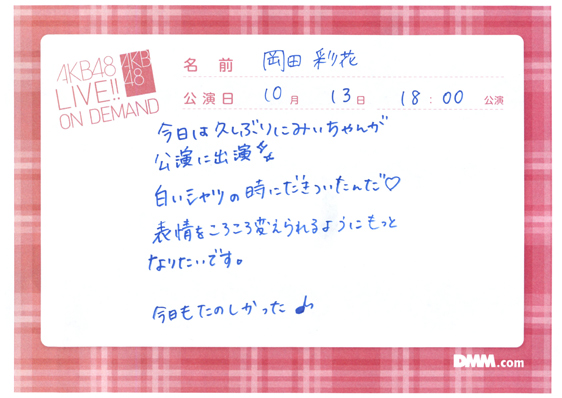 AKB48
LIVE!!
ON DEMAND
AKB
48
名前 岡田 彩花
公演日 10月 13日 18:00 公演
今日は久しぶりにみぃちゃんが
公演に出演
白いシャツの時にだきついたんだ♡
表情をころころ変えられるようにもっと
なりたいです。
今日もたのしかった♪
DMM.com